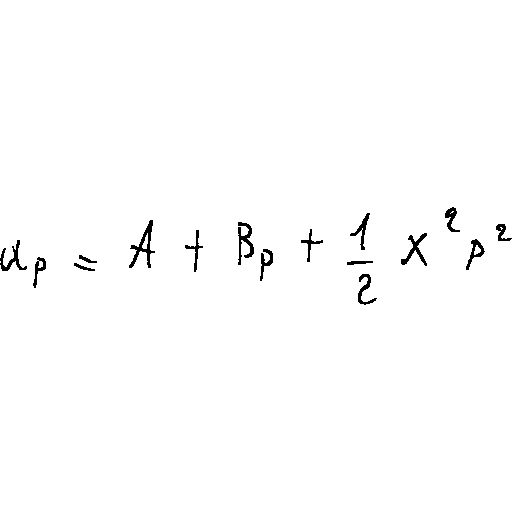 u_p = A + B_p + \frac{1}{2} x^2 p^2